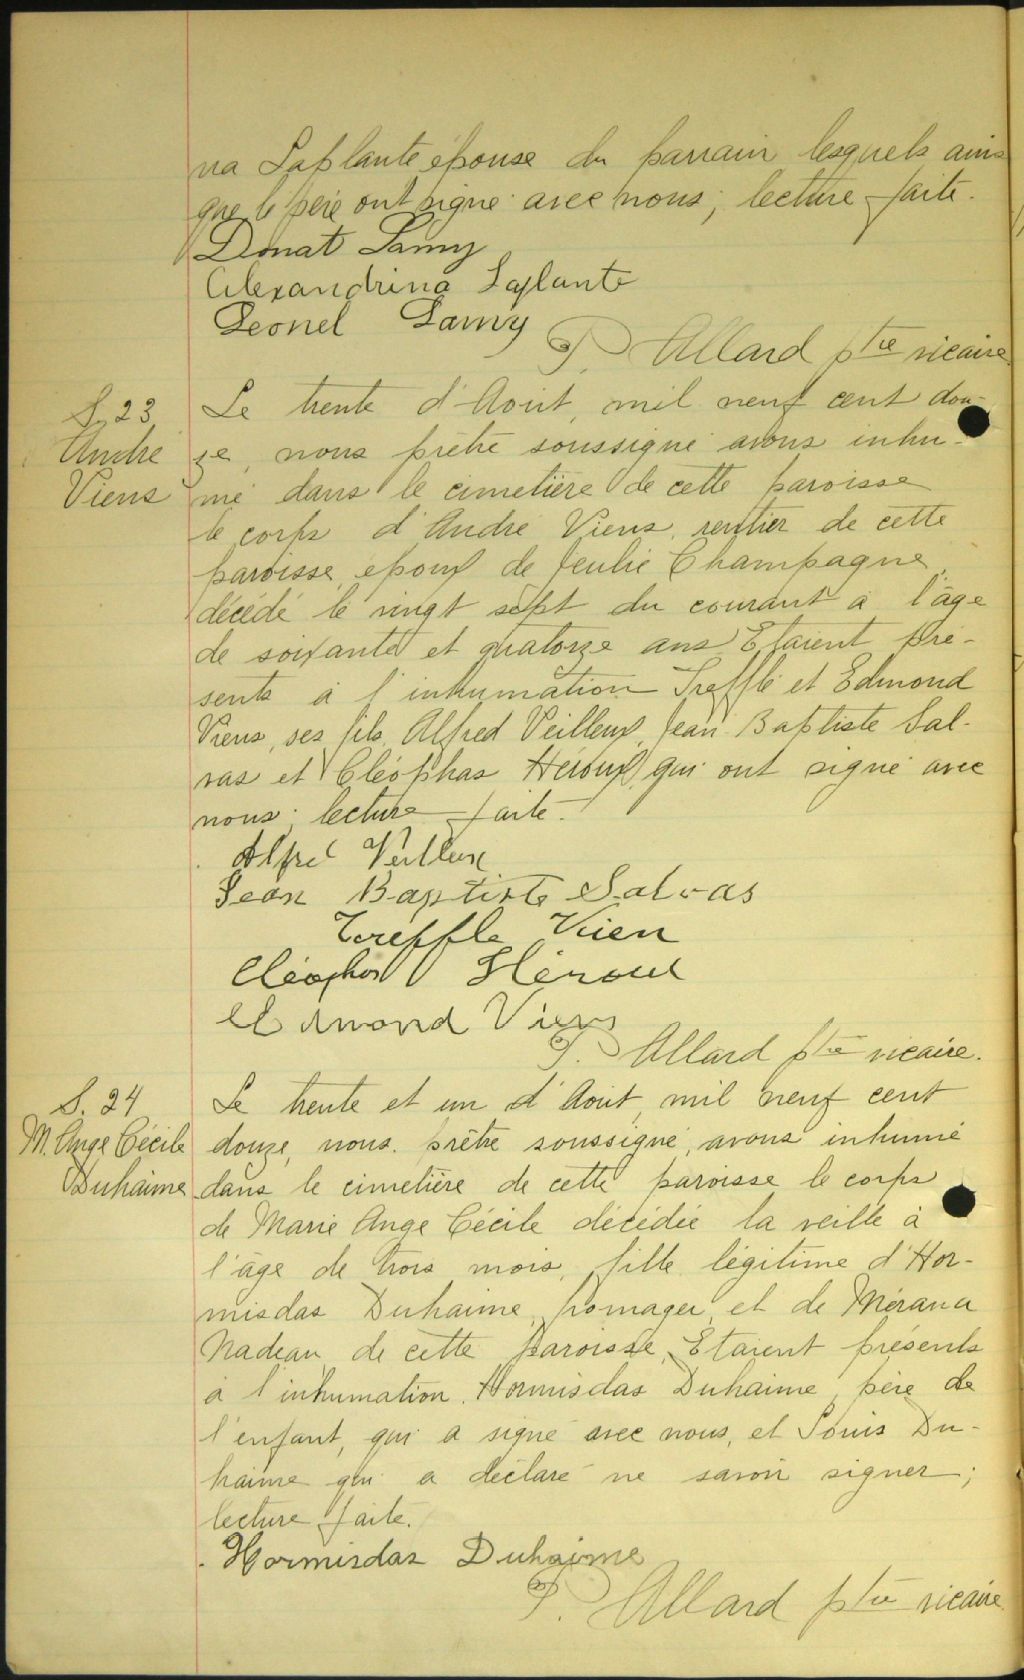 na Laplante épouse du parrain lesquels ainsi
que le père ont signé avec nous; lecture faite.
Donat Lamy
Alexandrina Laplante
Leonel Lamy
P. Allard ptre vicaire
S. 23
André
Viens
Le trente d'Aout mil neuf cent dou-
ze, nous prêtre soussigné avons inhu-
mé dans le cimetière de cette paroisse
le corps d'André Viens, rentier de cette
paroisse, époux de Julie Champagne,
décédé le vingt sept du courant à l'âge
de soixante et quatorze ans. Etaient pré-
sents à l'inhumation Trefflé et Edmond
Viens, ses fils, Alfred Veilleux, Jean Baptiste Sal-
vas et Cléophas Héroux, qui ont signé avec
nous; lecture faite.
Alfred Veilleux
Jean Baptiste Salvas
Treffle Vien
Cléophas Héroux
Edmond Viens
P. Allard ptre vicaire.
S. 24
M. Ange Cécile
Duhaime
Le trente et un d'Aout, mil neuf cent
douze, nous prêtre soussigné, avons inhumé
dans le cimetière de cette paroisse le corps
de Marie Ange Cécile décédée la veille à
l'âge de trois mois, fille légitime d'Hor-
misdas Duhaime, fromager, et de Mérana
Nadeau, de cette paroisse. Etaient présents
à l'inhumation Hormisdas Duhaime, père de
l'enfant, qui a signé avec nous, et Louis Du-
haime qui a déclaré ne savoir signer;
lecture faite.
Hormisdas Duhaime
P. Allard ptre vicaire